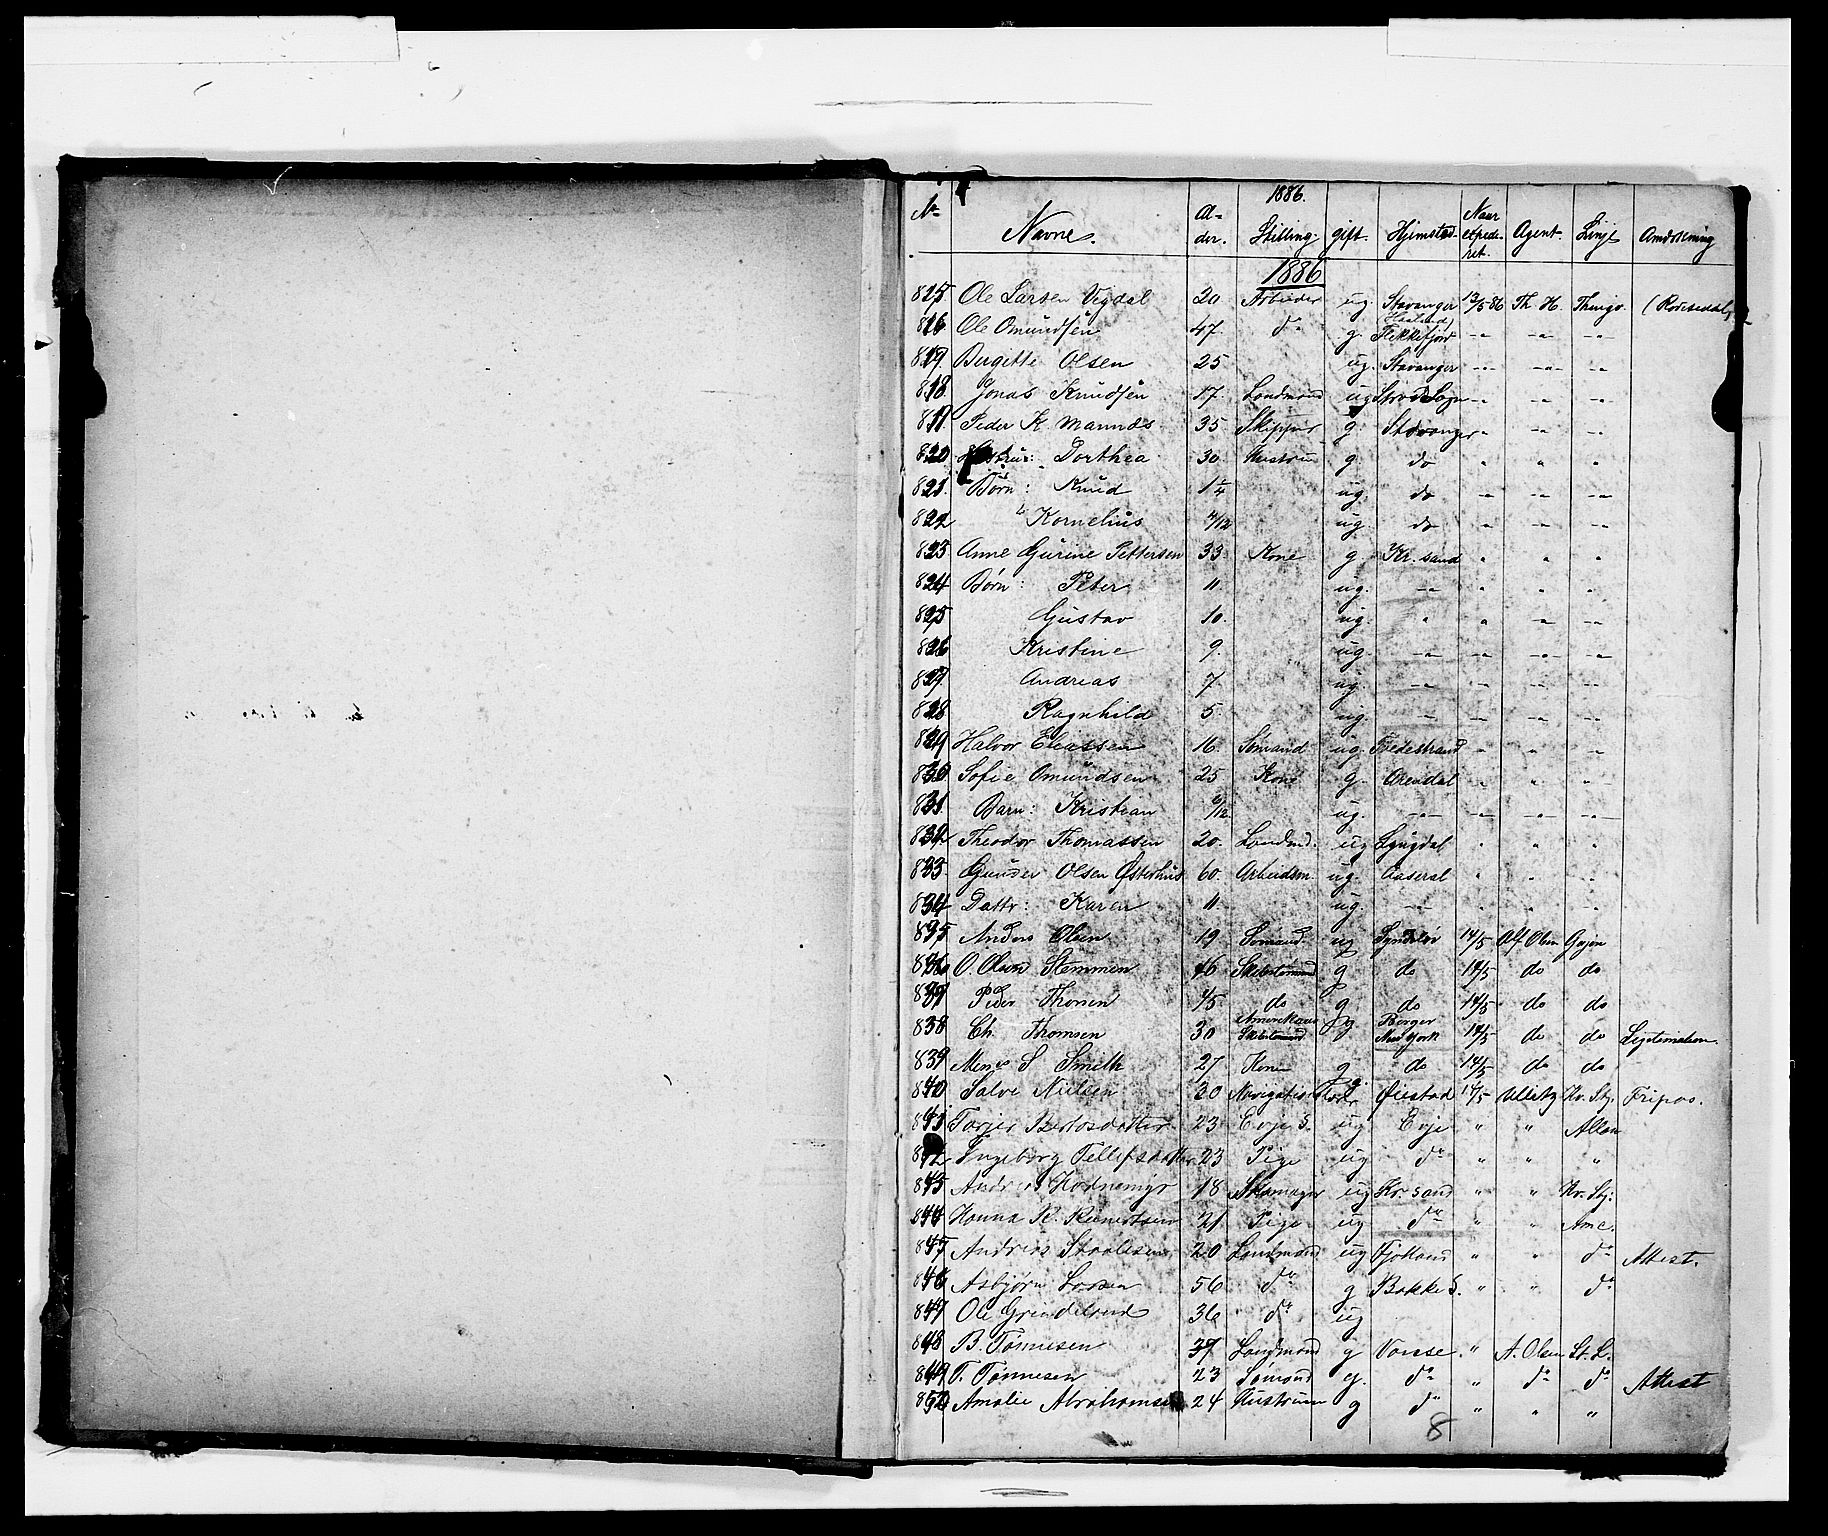 1886.
No Navne. Al-der. Stilling. gift. Hjemsted. Naar expede-ret. Agent. Linje Anmærkning
1886
815 Ole Larsen Vigdal 20 Arbeider ug. Stavanger 13/5 86 Th. H. Thingv.
816 Ole Omundsen 47 do g. Flekkefjord " " "
817 Birgitte Olsen 25 ug. Stavanger " " "
818 Jonas Knudsen 17. Landmand ug " " "
819 Peder K. Mannes 35 Skipper g. Stavanger " " "
820 Hustru: Dorthea 30 Hustru g. do " " "
821. Børn: Knud 1 1/4 ug. do " " "
822 " Kornelius 4/12 ug. do " " "
823 Anne Gurine Pettersen 33 Kone g. Kr.sand " " "
824 Børn: Peter 11. ug. " " " "
825 Gustav 10. ug. " " " "
826 Kristine 9. ug. " " " "
827 Andreas 7. ug. " " " "
828 Ragnhild 5. ug. " " " "
829 Halvor Eliassen 16. Sømand ug. Tvedestrand " " "
830 Sofie Omundsen 25 Kone g. Arendal " " "
831 Barn: Kristian /12 ug. " " " "
832. Theodor Thomassen 20. Landmd. ug Lyngdal " " "
833. Gunder Olsen Østerhus 60 Arbeidsm. ug. Aaseral " " "
834 Dattr: Karen 11 ug. " " " "
835 Anders Olsen 19 Sømand. ug 14/5 Alf. Olsen Geysir
836 O. Olsen Stemmen 46 g do 14/5 do do
837 Peder Thorsen 45 do g do 14/5 do do
838 Ch. Thomsen 30 Amerikansk g. Borger New York 14/5 do do Legitimation.
839 S Smith 27 Kone g do 14/5 do do
840 Salve Nielsen 20 Øiestad 14/5 Ullitz Kr. St. Fripas.
841 Torjer Bertosdatter 23 Evje S. ug Evje " " Allan
842 Ingeborg Tellefsdatter 23 Pige ug do " " "
843 Andreas Hodnemyr 18 Skomager ug Kr. sand " " Kr. St.
844 Hanna K. 21 Pige ug do " " Ame.
845 Andreas Staalesen 20 Landmand ug Fjotland " " do Attest.
846 Asbjørn Larsen 56 do g Bakke S. " " do
847 Ole Grindeland 36 do ug
848 B. Tønnesen 37 Landmand g Vanse " A. Olsen St. L.
849 T. Tønnesen 23 Sømand g. do " do do Attest
850 Amalie Abrahamsen 24 Hustruen g do " " "
8